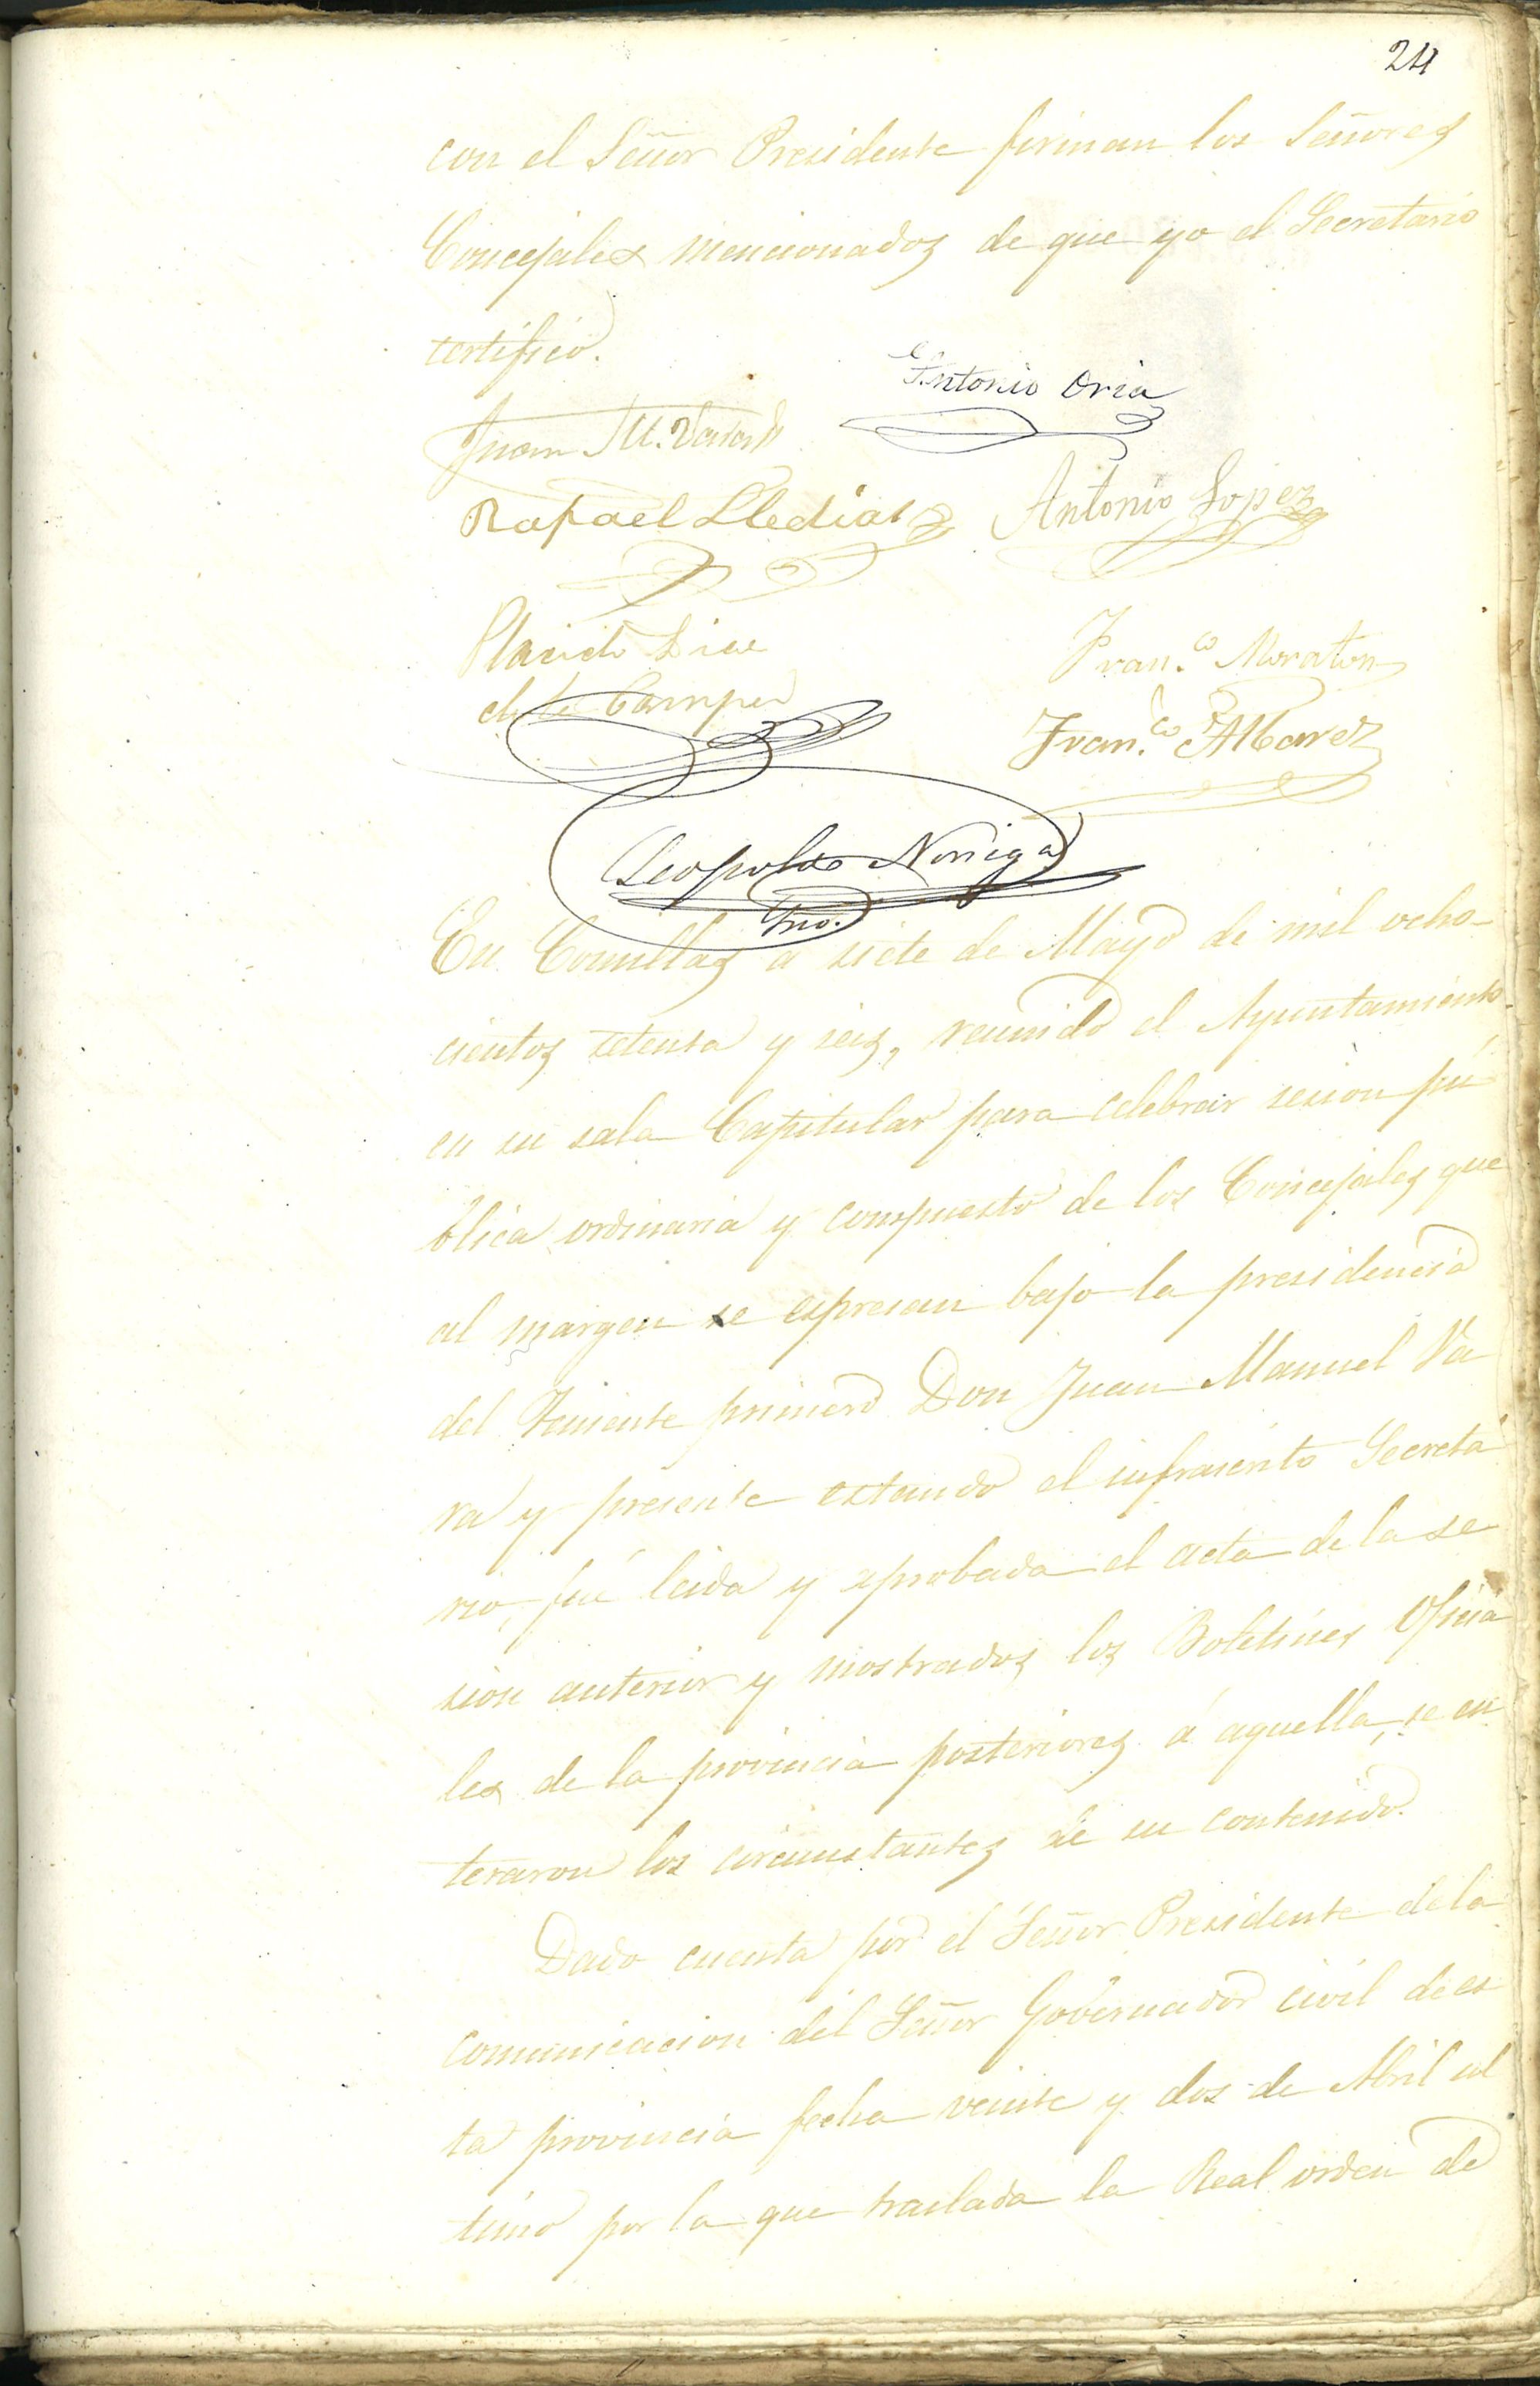 24
con el Señor Presidente firman los Señores
Concejales mencionados de que yo el Secretario
certifico.
Antonio Oria
Juan M. Vara
Rafael Lledias Antonio Lopez
Placido Diaz
de la Campa
Fran.co Moraton
Fran.co F Albarez
Leopoldo Noriega
Srio.
En Comillas a siete de Mayo de mil ocho-
cientos setenta y seis, reunido el Ayuntamiento
en su sala Capitular para celebrar sesion pú
blica ordinaria y compuesto de los Concejales que
al margen se espresan bajo la presidencia
del Teniente primero Don Juan Manuel Va
ra y presente estando el infrascrito Secreta
rio, fué leida y aprobada el acta de la se
sion anterior y mostrados los Boletines Oficia
les de la provincia posteriores á aquella, se en
teraron los circunstantes de su contenido.
Dado cuenta por el Señor Presidente de la
comunicacion del Señor Gobernador civil de es
ta provincia fecha veinte y dos de Abril ul
timo por la que traslada la Real orden de